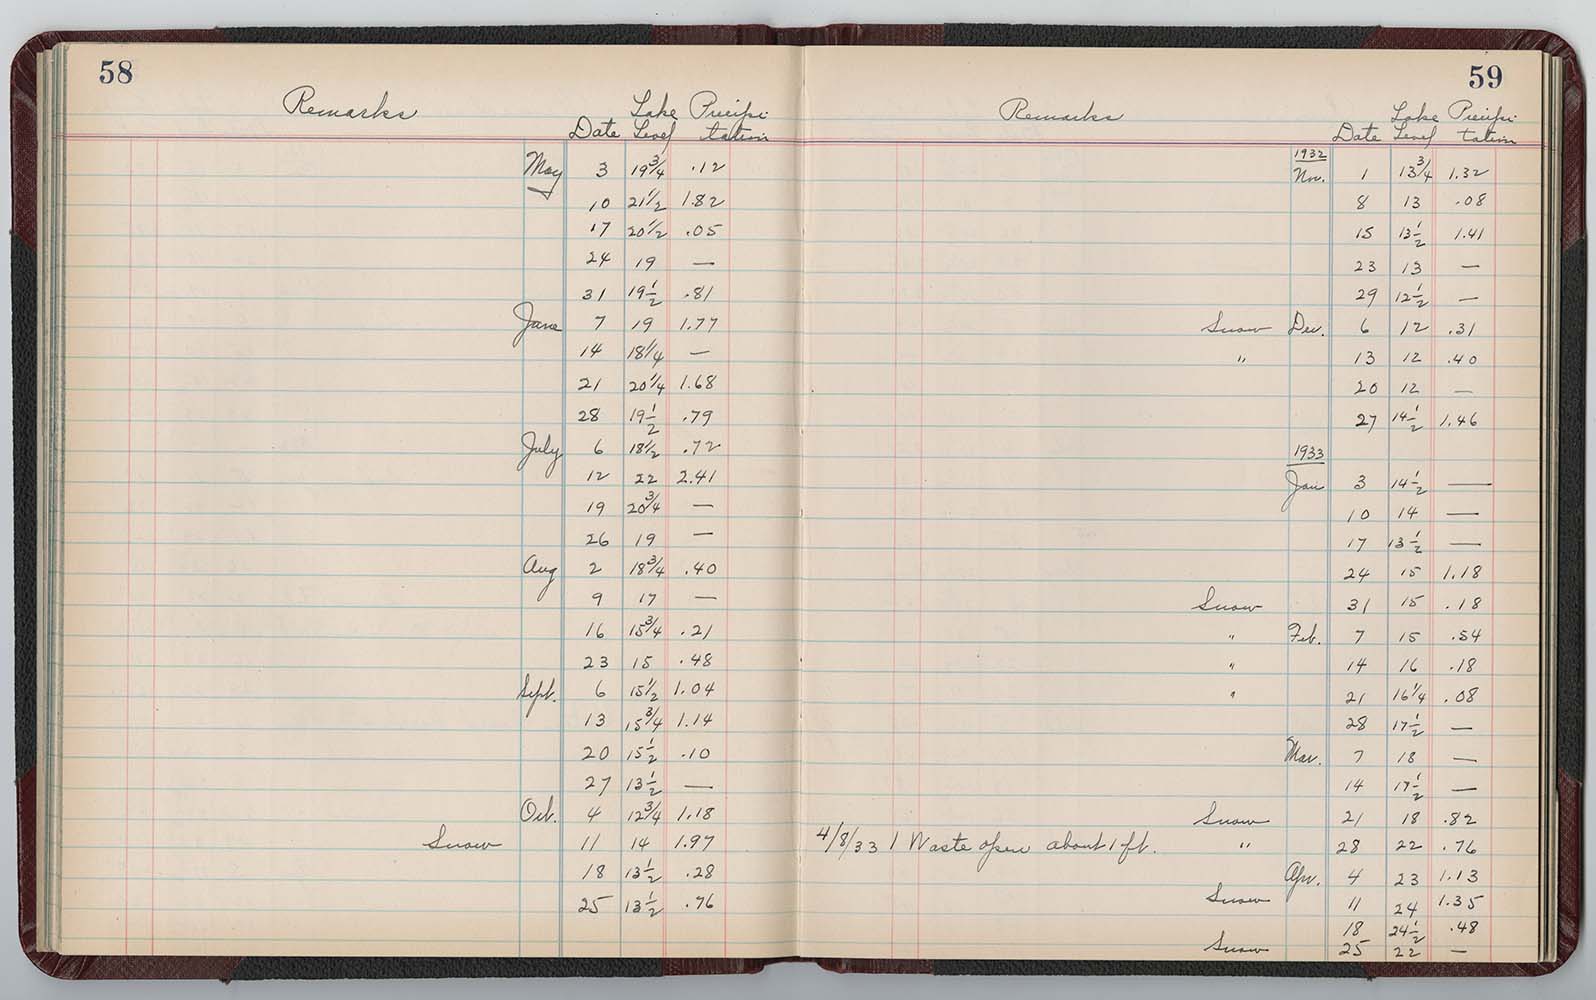 58
Remarks Date Lake Level Precipitation
May 3 19 3/4 .12
10 21 1/2 1.82
17 20 1/2 .05
24 19 —
31 19 1/2 .81
June 7 19 1.77
14 18 1/4 —
21 20 1/4 1.68
28 19 1/2 .79
July 6 18 1/2 .72
12 22 2.41
19 20 3/4 —
26 19 —
Aug 2 18 3/4 .40
9 17 —
16 15 3/4 .21
23 15 .48
Sept. 6 15 1/2 1.04
13 15 3/4 1.14
20 15 1/2 .10
27 13 1/2 —
Oct. 4 12 3/4 1.18
Snow 11 14 1.97
18 13 1/2 .28
25 13 1/2 .76
59
Remarks Date Lake Level Precipitation
1932
Nov. 1 13 3/4 1.32
8 13 .08
15 13 1/2 1.41
23 13 —
29 12 1/2 —
Snow Dec. 6 12 .31
" 13 12 .40
20 12 —
27 14 1/2 1.46
1933
Jan 3 14 1/2 —
10 14 —
17 13 1/2 —
24 15 1.18
Snow 31 15 .18
" Feb. 7 15 .54
" 14 16 .18
" 21 16 1/4 .08
28 17 1/2 —
Mar. 7 18 —
14 17 1/2 —
Snow 21 18 .82
4/8/33 1 Waste open about 1 ft. " 28 22 .76
Apr. 4 23 1.13
Snow 11 24 1.35
18 24 1/2 .48
Snow 25 22 —